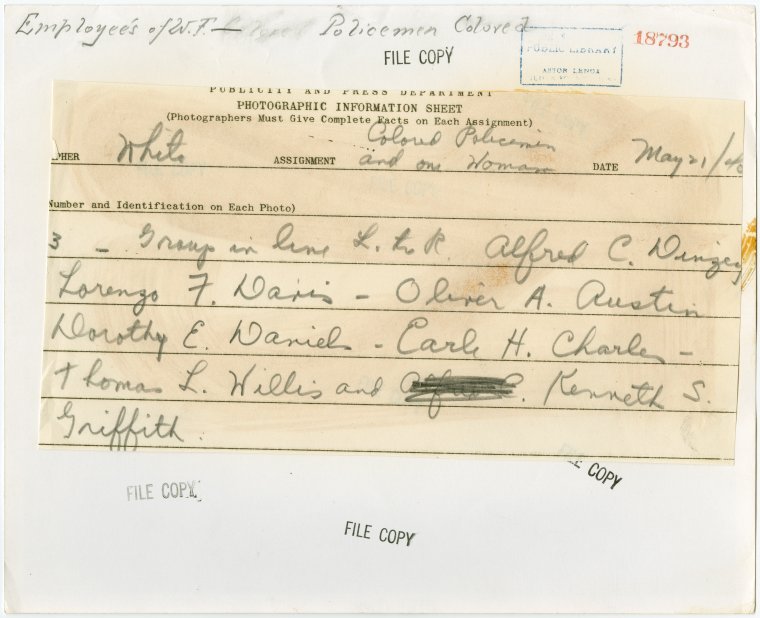 Employee's of W.F. — Policemen Colored
FILE COPY
PUBLIC LIBRARY
ASTOR LENOX
18793
PUBLICITY AND PRESS DEPARTMENT
PHOTOGRAPHIC INFORMATION SHEET
(Photographers Must Give Complete Facts on Each Assignment)
Colored Policemen
PHER White ASSIGNMENT and one Woman DATE May 21/40
Number and Identification on Each Photo)
3 - Group in line L. to R. Alfred C. Dingey
Lorenzo F. Davis - Oliver A. Austin
Dorothy E. Daniels - Earle H. Charles -
Thomas L. Willis and Kenneth S.
Griffith.
FILE COPY
FILE COPY
FILE COPY